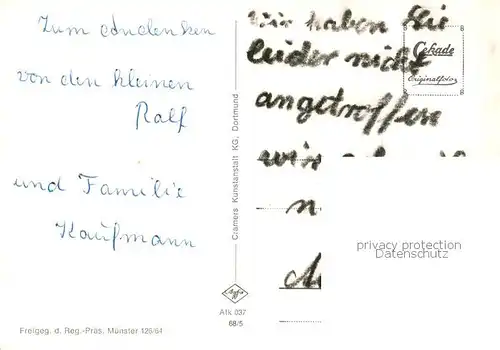 Zum Andenken
von den kleinen
Ralf
und Familie
Kaufmann
Freigeg. d. Reg.-Präs. Münster 126/64
Cramers Kunstanstalt KG, Dortmund
Agfa
Afk 037
68/5
Wir haben Sie
leider nicht
angetroffen
wir
Cekade
Originalfoto
privacy protection
Datenschutz